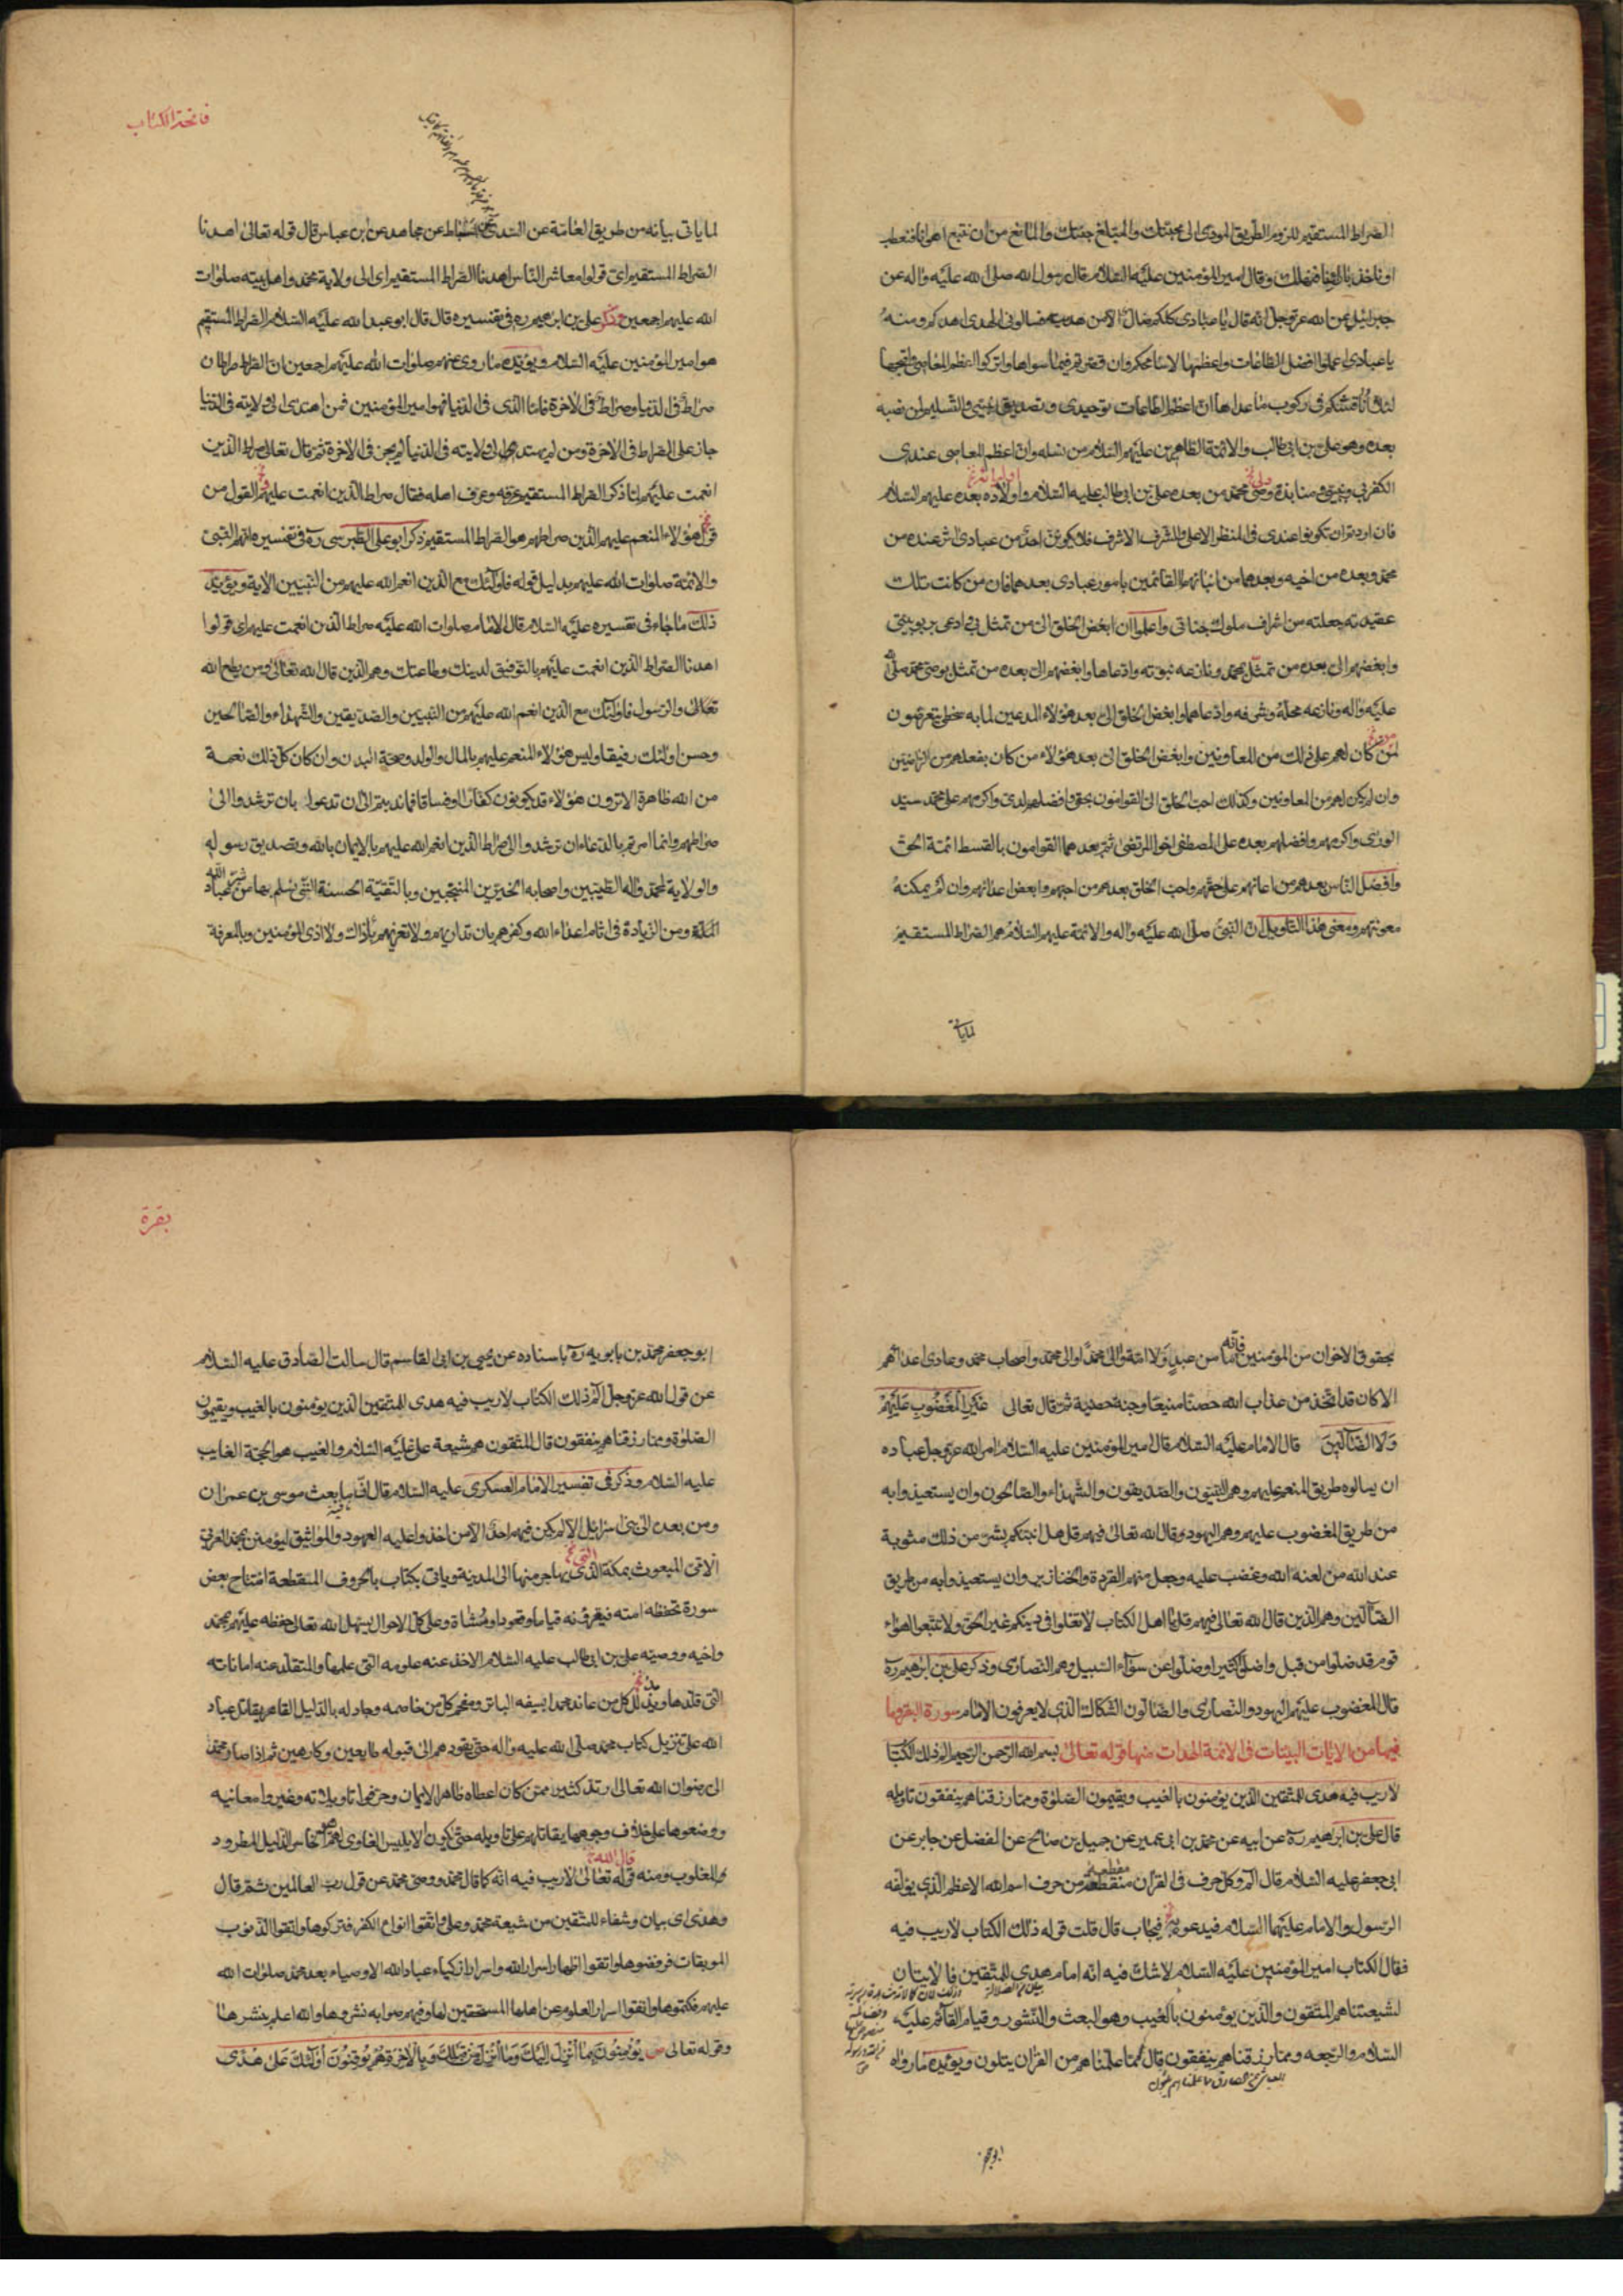 الصراط المستقيم للزوم الطريق المودى الى محبتك والمبلغ جنتك والمانع من ان نتبع اهوائنا فنعطب
او ناخذ بارائنا فنهلك وقال امير المؤمنين عليه السلام قال رسول الله صلى الله عليه واله عن
جبرائيل عن الله عز وجل انه قال يا عبادى كلكم ضال الا من هديته فسالونى الهدى اهدكم ومنه
يا عبادى اعملوا افضل الطاعات واعظمها لاسامحكم وان قصرتم فيما سواها واتركوا اعظم المعاصى واقبحها
لئلا اناقشكم فى ركوب ما عداها ان اعظم الطاعات توحيدى وتصديق نبيى والتسليم لمن نصبه
بعده وهو على بن ابى طالب والائمة الطاهرين عليهم السلام من نسله وان اعظم المعاصى عندى
الكفر بى وبنبيى ومنابذة ولى محمد من بعده على بن ابى طالب عليه السلام واولاده بعده عليهم السلام
فان اردتم ان تكونوا عندى فى المنظر الاعلى والشرف الاشرف فلا يكونن احد من عبادى اثر عنده من
محمد وبعده من اخيه وبعدهما من ابنائهما القائمين بامور عبادى بعدهما فان من كانت تلك
عقيدته جعلته من اشراف ملوك جنانى واعلموا ان ابغض الخلق الى من تمثل بى وادعى ربوبيتى
وابغضهم الى بعده من تمثل بمحمد ونازعه نبوته وادعاها وابغضهم الى بعده من تمثل بوصى محمد صلى الله
عليه واله ونازعه محله وشرفه وادعاهما وابغض الخلق الى بعد هؤلاء المدعين لما به سخطى يتعرضون
من كان لهم على ذلك من المعاونين وابغض الخلق الى بعد هؤلاء من كان بفعلهم من الراضين
وان لم يكن لهم من المعاونين وكذلك احب الخلق الى القوامون بحقى وافضلهم لدى واكرمهم على محمد سيد
الورى واكرمهم وافضلهم بعده على المصطفى اخو المرتضى ثم بعدهما القوامون بالقسط ائمة الحق
وافضل الناس بعدهم من اعانهم على حقهم واحب الخلق بعدهم من احبهم وابغض اعدائهم وان لم يمكنه
معونتهم ومعنى هذا التاويل ان النبى صلى الله عليه واله والائمة عليهم السلام هم الصراط المستقيم
لماياتى
فاتحة الكتاب
لما ياتى بيانه من طريق العامة عن السدى عن اسباط عن مجاهد عن ابن عباس قال قوله تعالى اهدنا
الصراط المستقيم اى قولوا معاشر الناس اهدنا الصراط المستقيم اى الى ولاية محمد واهل بيته صلوات
الله عليهم اجمعين وذكر على بن ابرهيم ره فى تفسيره قال قال ابو عبد الله عليه السلام الصراط المستقيم
هو امير المؤمنين عليه السلام ويؤيده ما روى عنهم صلوات الله عليهم اجمعين ان الصراط صراطان
صراط فى الدنيا وصراط فى الاخرة فاما الذى فى الدنيا فهو امير المؤمنين فمن اهتدى الى ولايته فى الدنيا
جاز على الصراط فى الاخرة ومن لم يهتد الى ولايته فى الدنيا لم يجز فى الاخرة ثم قال تعالى صراط الذين
انعمت عليهم لما ذكر الصراط المستقيم عرفه وعرف اهله فقال صراط الذين انعمت عليهم القول من
قول هؤلاء المنعم عليهم الذين صراطهم هو الصراط المستقيم ذكر ابو على الطبرسى ره فى تفسيره انهم النبى
والائمة صلوات الله عليهم بدليل قوله فاولئك مع الذين انعم الله عليهم من النبيين الاية ويؤيد
ذلك ما جاء فى تفسيره عليه السلام قال الامام صلوات الله عليه صراط الذين انعمت عليهم اى قولوا
اهدنا الصراط الذين انعمت عليهم بالتوفيق لدينك وطاعتك وهم الذين قال الله تعالى ومن يطع الله
تعالى والرسول فاولئك مع الذين انعم الله عليهم من النبيين والصديقين والشهداء والصالحين
وحسن اولئك رفيقا وليس هؤلاء المنعم عليهم بالمال والولد وصحة البدن وان كان كل ذلك نعمة
من الله ظاهرة الا ترون هؤلاء قد يكونون كفارا او فساقا فما ندبتم الى ان تدعوا بان ترشدوا الى
صراطهم وانما امرتم بالدعاء ان ترشدوا الى صراط الذين انعم الله عليهم بالايمان بالله وتصديق رسوله
والولاية لمحمد واله الطيبين واصحابه الخيرين المنتجبين وبالتقية الحسنة التى يسلم بها من شر عباد الله
ومن الزيادة فى اثام اعداء الله وكفرهم بان تداريهم ولا تعزيهم باذاك ولا اذى المؤمنين وبالمعرفة
بحقوق الاخوان من المؤمنين فانه ما من عبد ولا امة والى محمدا او الى محمد واصحاب محمد وعادى اعدائهم
الا كان قد اتخذ من عذاب الله حصنا منيعا وجنة حصينة ثم قال تعالى غَيْرِ الْمَغْضُوبِ عَلَيْهِمْ
وَلَا الضَّآلِّينَ قال الامام عليه السلام قال امير المؤمنين عليه السلام امر الله عز وجل عباده
ان يسالوه طريق المنعم عليهم وهم النبيون والصديقون والشهداء والصالحون وان يستعيذوا به
من طريق المغضوب عليهم وهم اليهود وقال الله تعالى فيهم قل هل انبئكم بشر من ذلك مثوبة
عند الله من لعنه الله وغضب عليه وجعل منهم القردة والخنازير وان يستعيذوا به من طريق
الضالين وهم الذين قال الله تعالى فيهم قل يا اهل الكتاب لا تغلوا فى دينكم غير الحق ولا تتبعوا اهواء
قوم قد ضلوا من قبل واضلوا كثيرا وضلوا عن سواء السبيل وهم النصارى وذكر على بن ابرهيم ره
قال المغضوب عليهم اليهود والنصارى والضالون الشكاك الذى لا يعرفون الامام سورة البقرة وما
فيها من الايات البينات فى الائمة الهداة منها قوله تعالى بسم الله الرحمن الرحيم الم ذلك الكتاب
لا ريب فيه هدى للمتقين الذين يؤمنون بالغيب ويقيمون الصلوة ومما رزقناهم ينفقون تاويله
قال على بن ابرهيم ره عن ابيه عن محمد بن ابى عمير عن جميل بن صالح عن الفضل عن جابر عن
ابى جعفر عليه السلام قال الم وكل حرف فى القران منقطعة من حرف اسم الله الاعظم الذى يؤلفه
الرسول والامام عليهما السلام فيدعو به فيجاب قال قلت قوله ذلك الكتاب لا ريب فيه
فقال الكتاب امير المؤمنين عليه السلام لا شك فيه انه امام هدى للمتقين فالايتان
لشيعتنا هم المتقون والذين يؤمنون بالغيب وهو البعث والنشور وقيام القائم عليه
السلام والرجعه ومما رزقناهم ينفقون قال مما علمناهم من القران يتلون ويؤيده ما رواه
ابوجعفر
بقرة
ابو جعفر محمد بن بابويه ره باسناده عن يحيى بن ابى القاسم قال سالت الصادق عليه السلام
عن قول الله عز وجل الم ذلك الكتاب لا ريب فيه هدى للمتقين الذين يؤمنون بالغيب ويقيمون
الصلوة ومما رزقناهم ينفقون قال المتقون هم شيعة على عليه السلام والغيب هو الحجة الغايب
عليه السلام وذكر فى تفسير الامام العسكرى عليه السلام قال ان الله لما بعث موسى بن عمران
ومن بعده الى بنى اسرائيل لم يكن فيهم احد الا من اخذوا عليه العهود والمواثيق ليؤمنن بمحمد العربى
الامى المبعوث بمكة الذى يهاجر منها الى المدينة وياتى بكتاب بالحروف المنقطعة افتتاح بعض
سورة تحفظه امته فيقرؤنه قياما وقعودا ومشاة وعلى كل الاحوال يسهل الله تعالى حفظه عليهم بمحمد
واخيه ووصيه على بن ابى طالب عليه السلام الاخذ عنه علومه التى علمها والمتقلد عنه اماناته
التى قلدها ويذلل كل من عاند محمدا بسيفه الباتر ومفحم كل من خاصمه وجادله بالدليل القاهر يقاتل عباد
الله على تنزيل كتاب محمد صلى الله عليه واله حتى يقودهم الى قبوله طايعين وكارهين ثم اذا صار محمد
الى رضوان الله تعالى ارتد كثير ممن كان اعطاه ظاهر الايمان وحرفوا تاويلاته وغيروا معانيه
ووضعوها على خلاف وجوهها يقاتلهم على تاويله حتى يكون ابليس الغاوى لهم هو الخاسر الذليل المطرود
والمغلوب ومنه قوله تعالى لا ريب فيه انه كما قال محمد ووصى محمد عن قول رب العالمين ثم قال
وهدى اى بيان وشفاء للمتقين من شيعة محمد وعلى واتقوا انواع الكفر فتركوها واتقوا الذنوب
الموبقات فرفضوها واتقوا اظهار اسرار الله واسرار ازكياء عباد الله الاوصياء بعد محمد صلوات الله
عليهم فكتموها واتقوا اسرار العلوم عن اهلها المستحقين لها وفيهم صوابه نشروها والله اعلم بنشرها
وقوله تعالى يُؤْمِنُونَ بِمَا أُنْزِلَ إِلَيْكَ وَمَا أُنْزِلَ مِنْ قَبْلِكَ وَبِالْآخِرَةِ هُمْ يُوقِنُونَ أُولَئِكَ عَلَى هُدًى